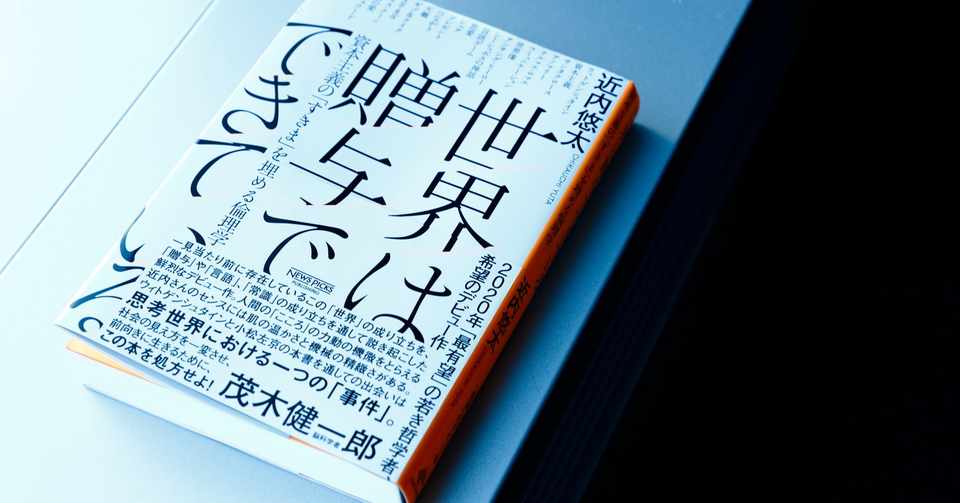 近内悠太
CHIKAUCHI YUTA
世界は
贈与で
できている。
資本主義の「すきま」を埋める倫理学
NEWS PICKS
PUBLISHING
2020年、「最有望」の若き哲学者
希望のデビュー作
一見当たり前に存在しているこの「世界」の成り立ちを、
「贈与」や「言語」、「常識」の成り立ちを通して説き起こした
鮮烈なデビュー作。人間の「こころ」の力動の機微をとらえる
近内さんのセンスには肌の温かさと機械の精緻さがある。
ウィトゲンシュタインと小松左京の本書を通しての出会いは
思考世界における一つの「事件」。
社会の見え方を一変させ、
前向きに生きるために、
この本を処方せよ！
脳科学者
茂木健一郎
近内悠太